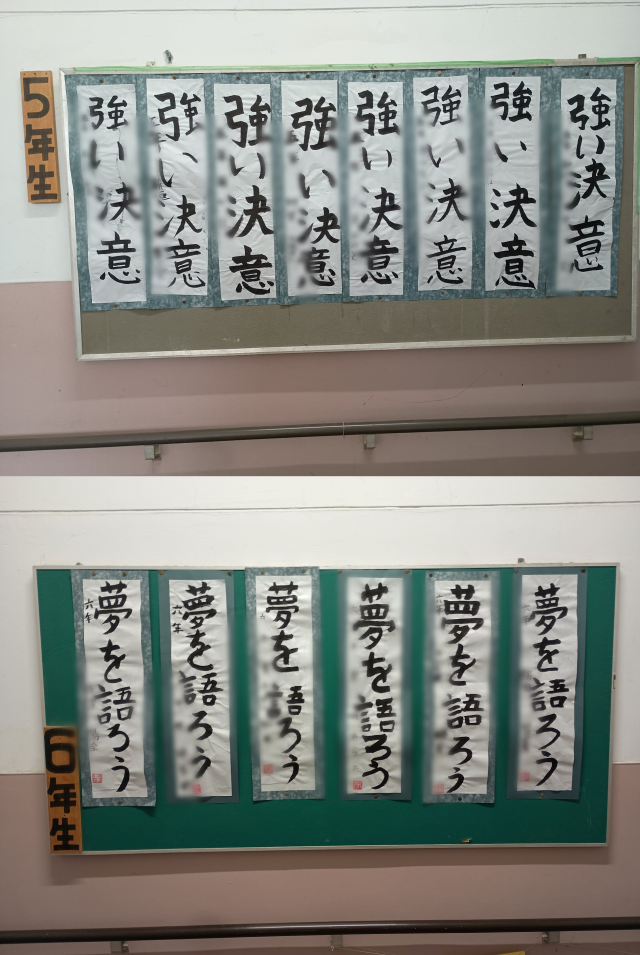 5年生
強い決意
強い決意
強い決意
強い決意
強い決意
強い決意
強い決意
強い決意
6年生
夢を語ろう
六年
夢を語ろう
六年
夢を語ろう
夢を語ろう
夢を語ろう
夢を語ろう